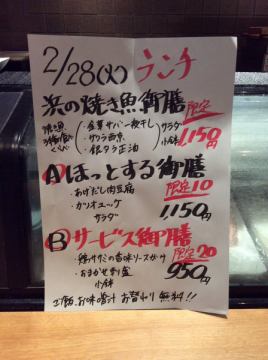 2/28(火) ランチ
浜の焼き魚御膳
焼魚
3種盛
金華サバ一夜干し
・サワラ西京
・銀タラ正油
サラダ
小鉢
限定
1,150円
Aほっとする御膳
・あげだし肉豆腐
・カツオユッケ
サラダ
限定10
1,150円
Bサービス御膳
・鶏ササミの香味ソースがけ
・おまかせお釜
小鉢
限定20
950円
ご飯、お味噌汁 お替わり 無料!!